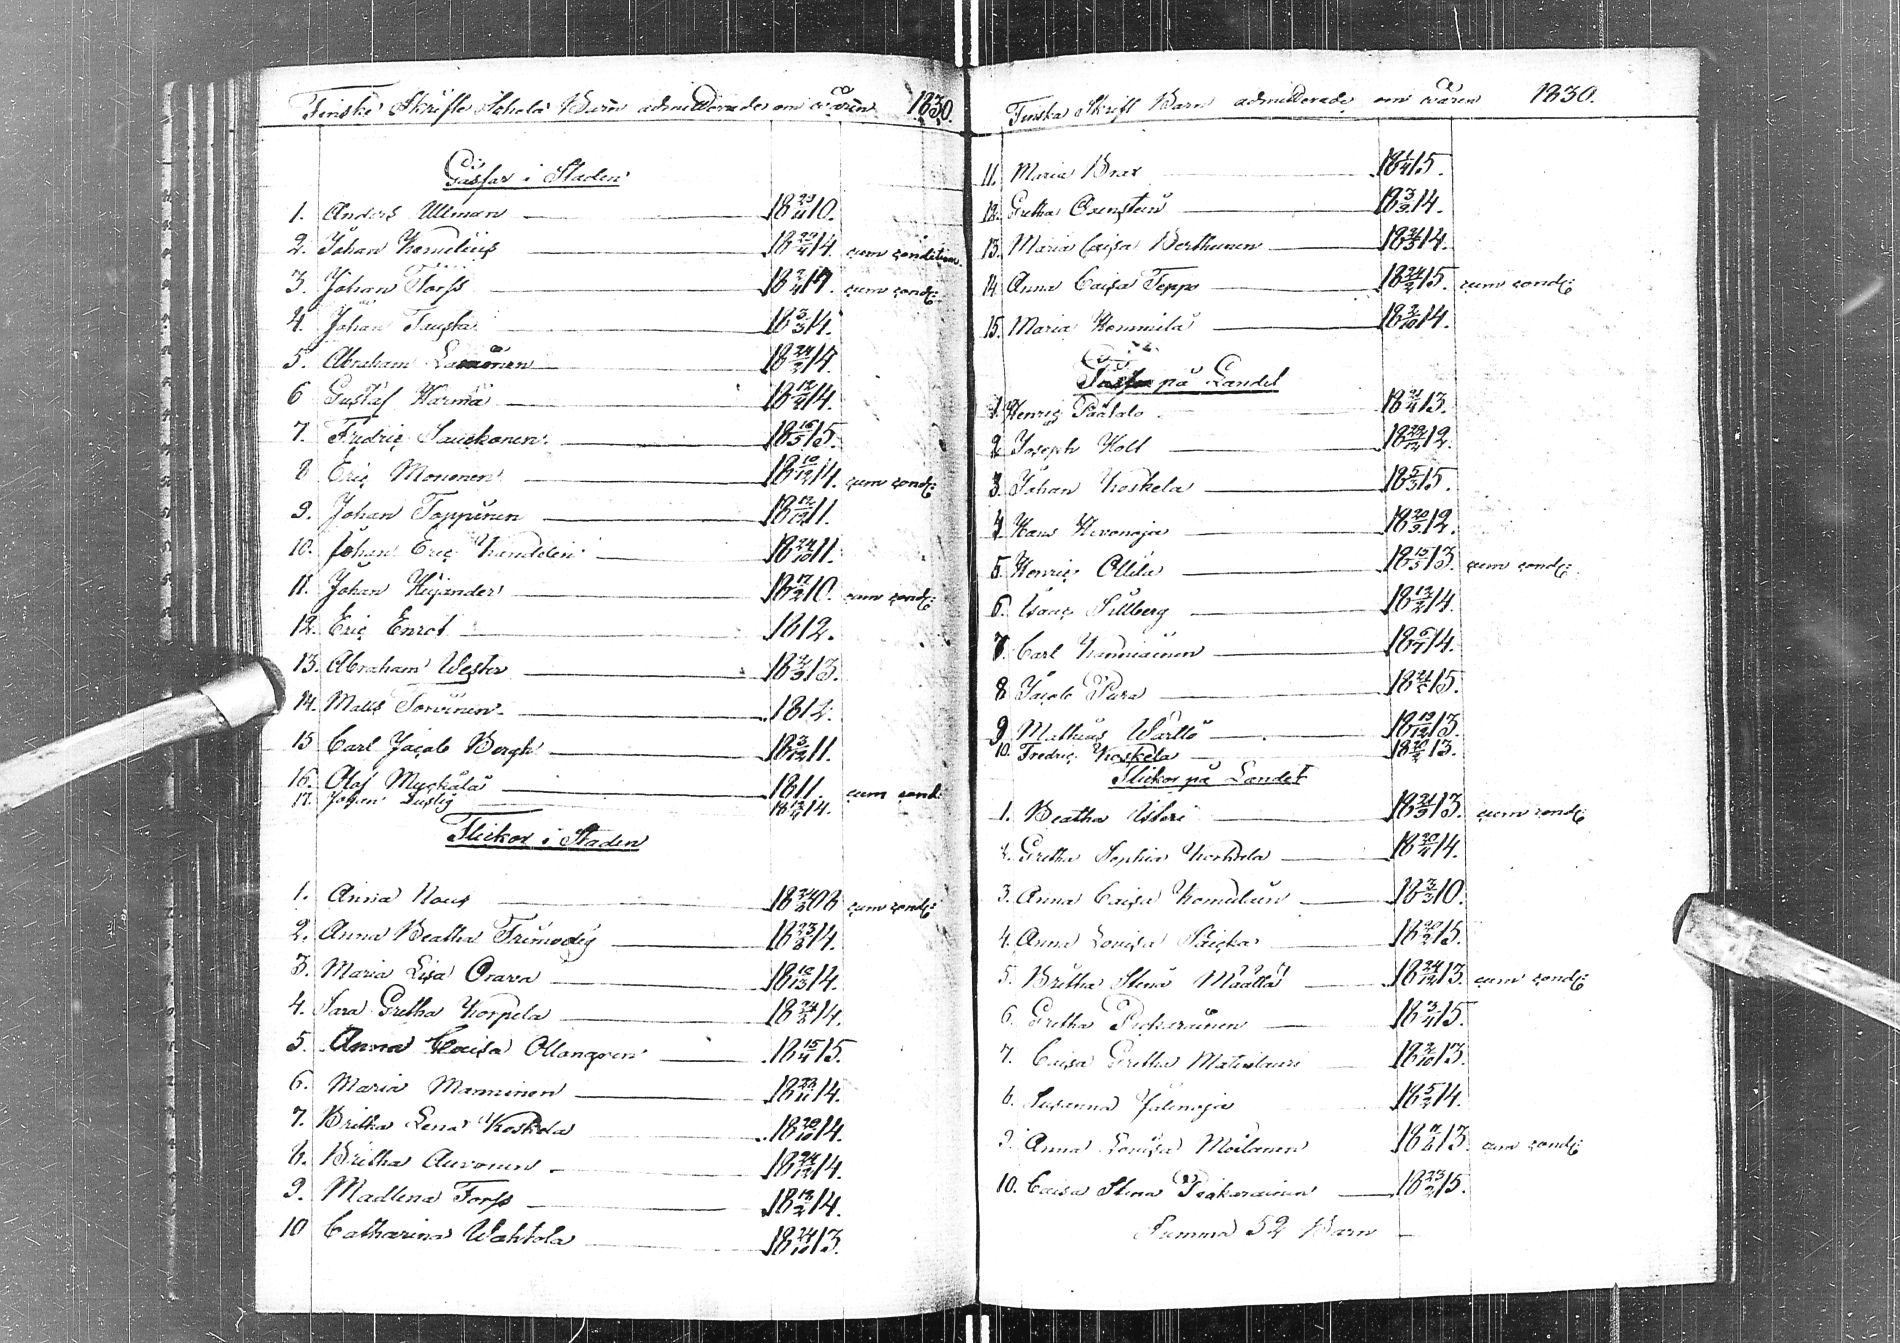 Finske Skrifte Skhola Barn admitterade om våren 1830.
Gåssar i Staden
1. Anders Ullman 18 23/11 10.
2. Johan Komulius 18 27/4 14. cum condition.
3. Johan Forss 18 2/4 17. cum cond:
4. Johan 18 3/3 14.
5. Abraham 18 24/2 17.
6 Gustaf Harma 18 12/2 14.
7. Fredric Sauckonen 18 16/5 15.
8 Eric Mononen 18 10/12 14. cum cond:
9. Johan Toppinen 18 12/12 11.
10. Johan Eric 18 24/10 11.
11. Johan Heijander 18 17/2 10. cum cond:
12. Eric Enrot 1812.
13. Abraham Wester 18 2/9 13.
14. Matts Torvinen 1812.
15 Carl Jacob Bergh 18 3/12 11.
16. Olof Myckälä 1811. cum cond:
17. Johan Lustig 18 12/4 14.
Flickor i Staden
1. Anna 18 24/2 08 cum cond:
2. Anna Beatha Frimodig 18 23/8 14.
3. Maria Lisa Orava 18 14.
4. Sara Gretha Korpela 18 24/8 14.
5. Anna Caisa Ollonqven 18 15/4 15.
6. Maria Manninen 18 23/11 14.
7. Britha Lena Koskela 18 20/10 14.
8. Britha Auvonen 18 24/12 14.
9. Madlena Forss 18 13/2 14.
10 Catharina Wahtola 18 24/10 13.
Finska Skrift Barn admitterade om våren 1830.
11. Maria Brax 18 1/4 15.
12. Gretha Oxenstein 18 3/9 14.
13. Maria Caisa Berthunen 18 14.
14. Anna Caisa Teppo 18 24/2 15. cum cond:
15. Maria Kommila 18 2/10 14.
på Landet
1. Henric Päätalo 18 2/4 13.
2. Joseph Holl 18 29/12 12.
3. Johan Koskela 18 5/3 15.
4. Hans Hevonoja 18 20/9 12.
5. Henric Ollila 18 15/5 13. cum cond:
6. Isaac Sillberg 18 13/2 14.
7. Carl 18 6/7 14.
8 Jacob Pura 18 15.
9 Mathias Wartto 18 19/12 13.
10. Fredric Koskela 18 20/2 13.
Flickor på Landet
1. Beatha 18 24/9 13. cum cond:
2. Gretha Sophia Korkala 18 20/11 14.
3. Anna Caisa Komulain 18 3/3 10.
4. Anna Lovisa 18 20/2 15.
5. Britha Stina Määttä 18 24/12 13. cum cond:
6. Gretha Pickarainen 18 3/4 15.
7. Caisa Gretha Matilauri 18 2/10 13.
8. Susanna Jälinoja 18 5/2 14.
9. Anna Lovisa Moilanen 18 13. cum cond:
10. Caisa Stina Pickarainen 18 23/2 15.
Summa 52 Barn